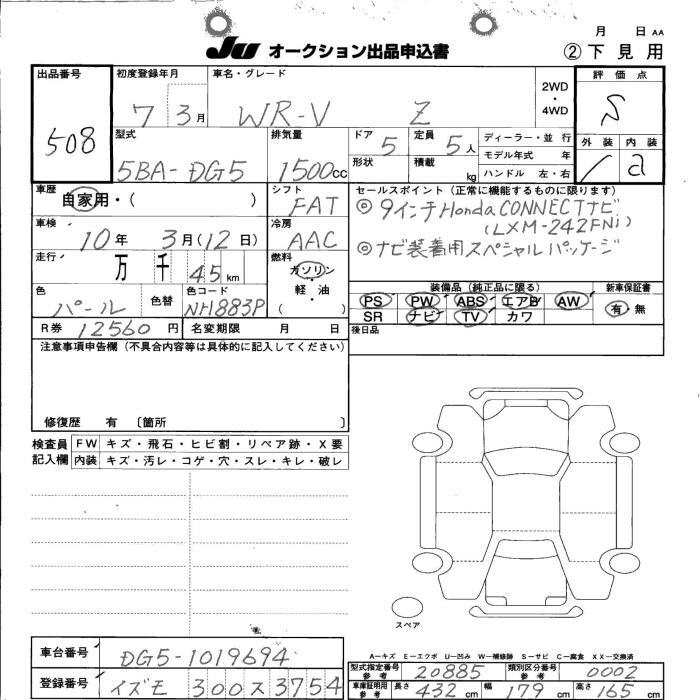 月 日 AA
JU オークション出品申込書 ②下見用
出品番号 508
初度登録年月 7 3月
車名・グレード WR-V Z
2WD・4WD
評価点 S
外装 内装 a
型式 5BA-DG5
排気量 1500cc
ドア 5
形状
定員 5人
積載 kg
ディーラー・並行
モデル年式 年
ハンドル 左・右
車歴 自家用・( )
シフト FAT
車検 10年 3月(12日)
冷房 AAC
走行 万 千 45 km
燃料 ガソリン・軽・油( )
色 パール 色替
色コード NH883P
R券 12560円
名変期限 月 日
セールスポイント(正常に機能するものに限ります)
◎9インチHonda CONNECTナビ
(LXM-242FNi)
◎ナビ装着用スペシャルパッケージ
装備品(純正品に限る)
PS PW ABS エアB AW
SR ナビ TV カワ
新車保証書 有・無
後日品
注意事項申告欄(不具合内容等は具体的に記入してください)
修復歴 有 〔箇所 〕
検査員記入欄
FW キズ・飛石・ヒビ割・リペア跡・X要
内装 キズ・汚レ・コゲ・穴・スレ・キレ・破レ
スペア
A-キズ E-エクボ U-凹み W-補修跡 S-サビ C-腐食 XX-交換済
車台番号 DG5-1019694
登録番号 イズモ 300 ス 3754
型式指定番号 参考 20885
類別区分番号 参考 0002
車庫証明用 参考 長さ 432 幅 179 高さ 165